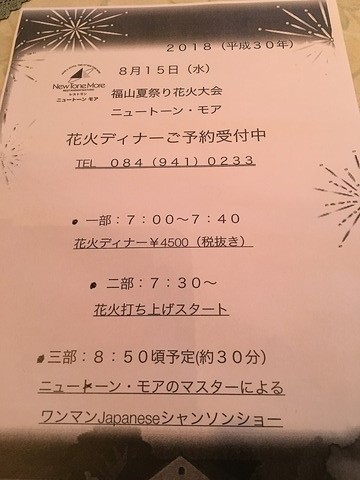 ２０１８（平成３０年）
NewToneMore
レストラン
ニュートーン モア
８月１５日（水）
福山夏祭り花火大会
ニュートーン・モア
花火ディナーご予約受付中
TEL ０８４（９４１）０２３３
● 一部：７：００～７：４０
花火ディナー¥4500（税抜き）
● 二部：７：３０～
花火打ち上げスタート
●三部：８：５０頃予定(約３０分）
ニュートーン・モアのマスターによる
ワンマンJapaneseシャンソンショー